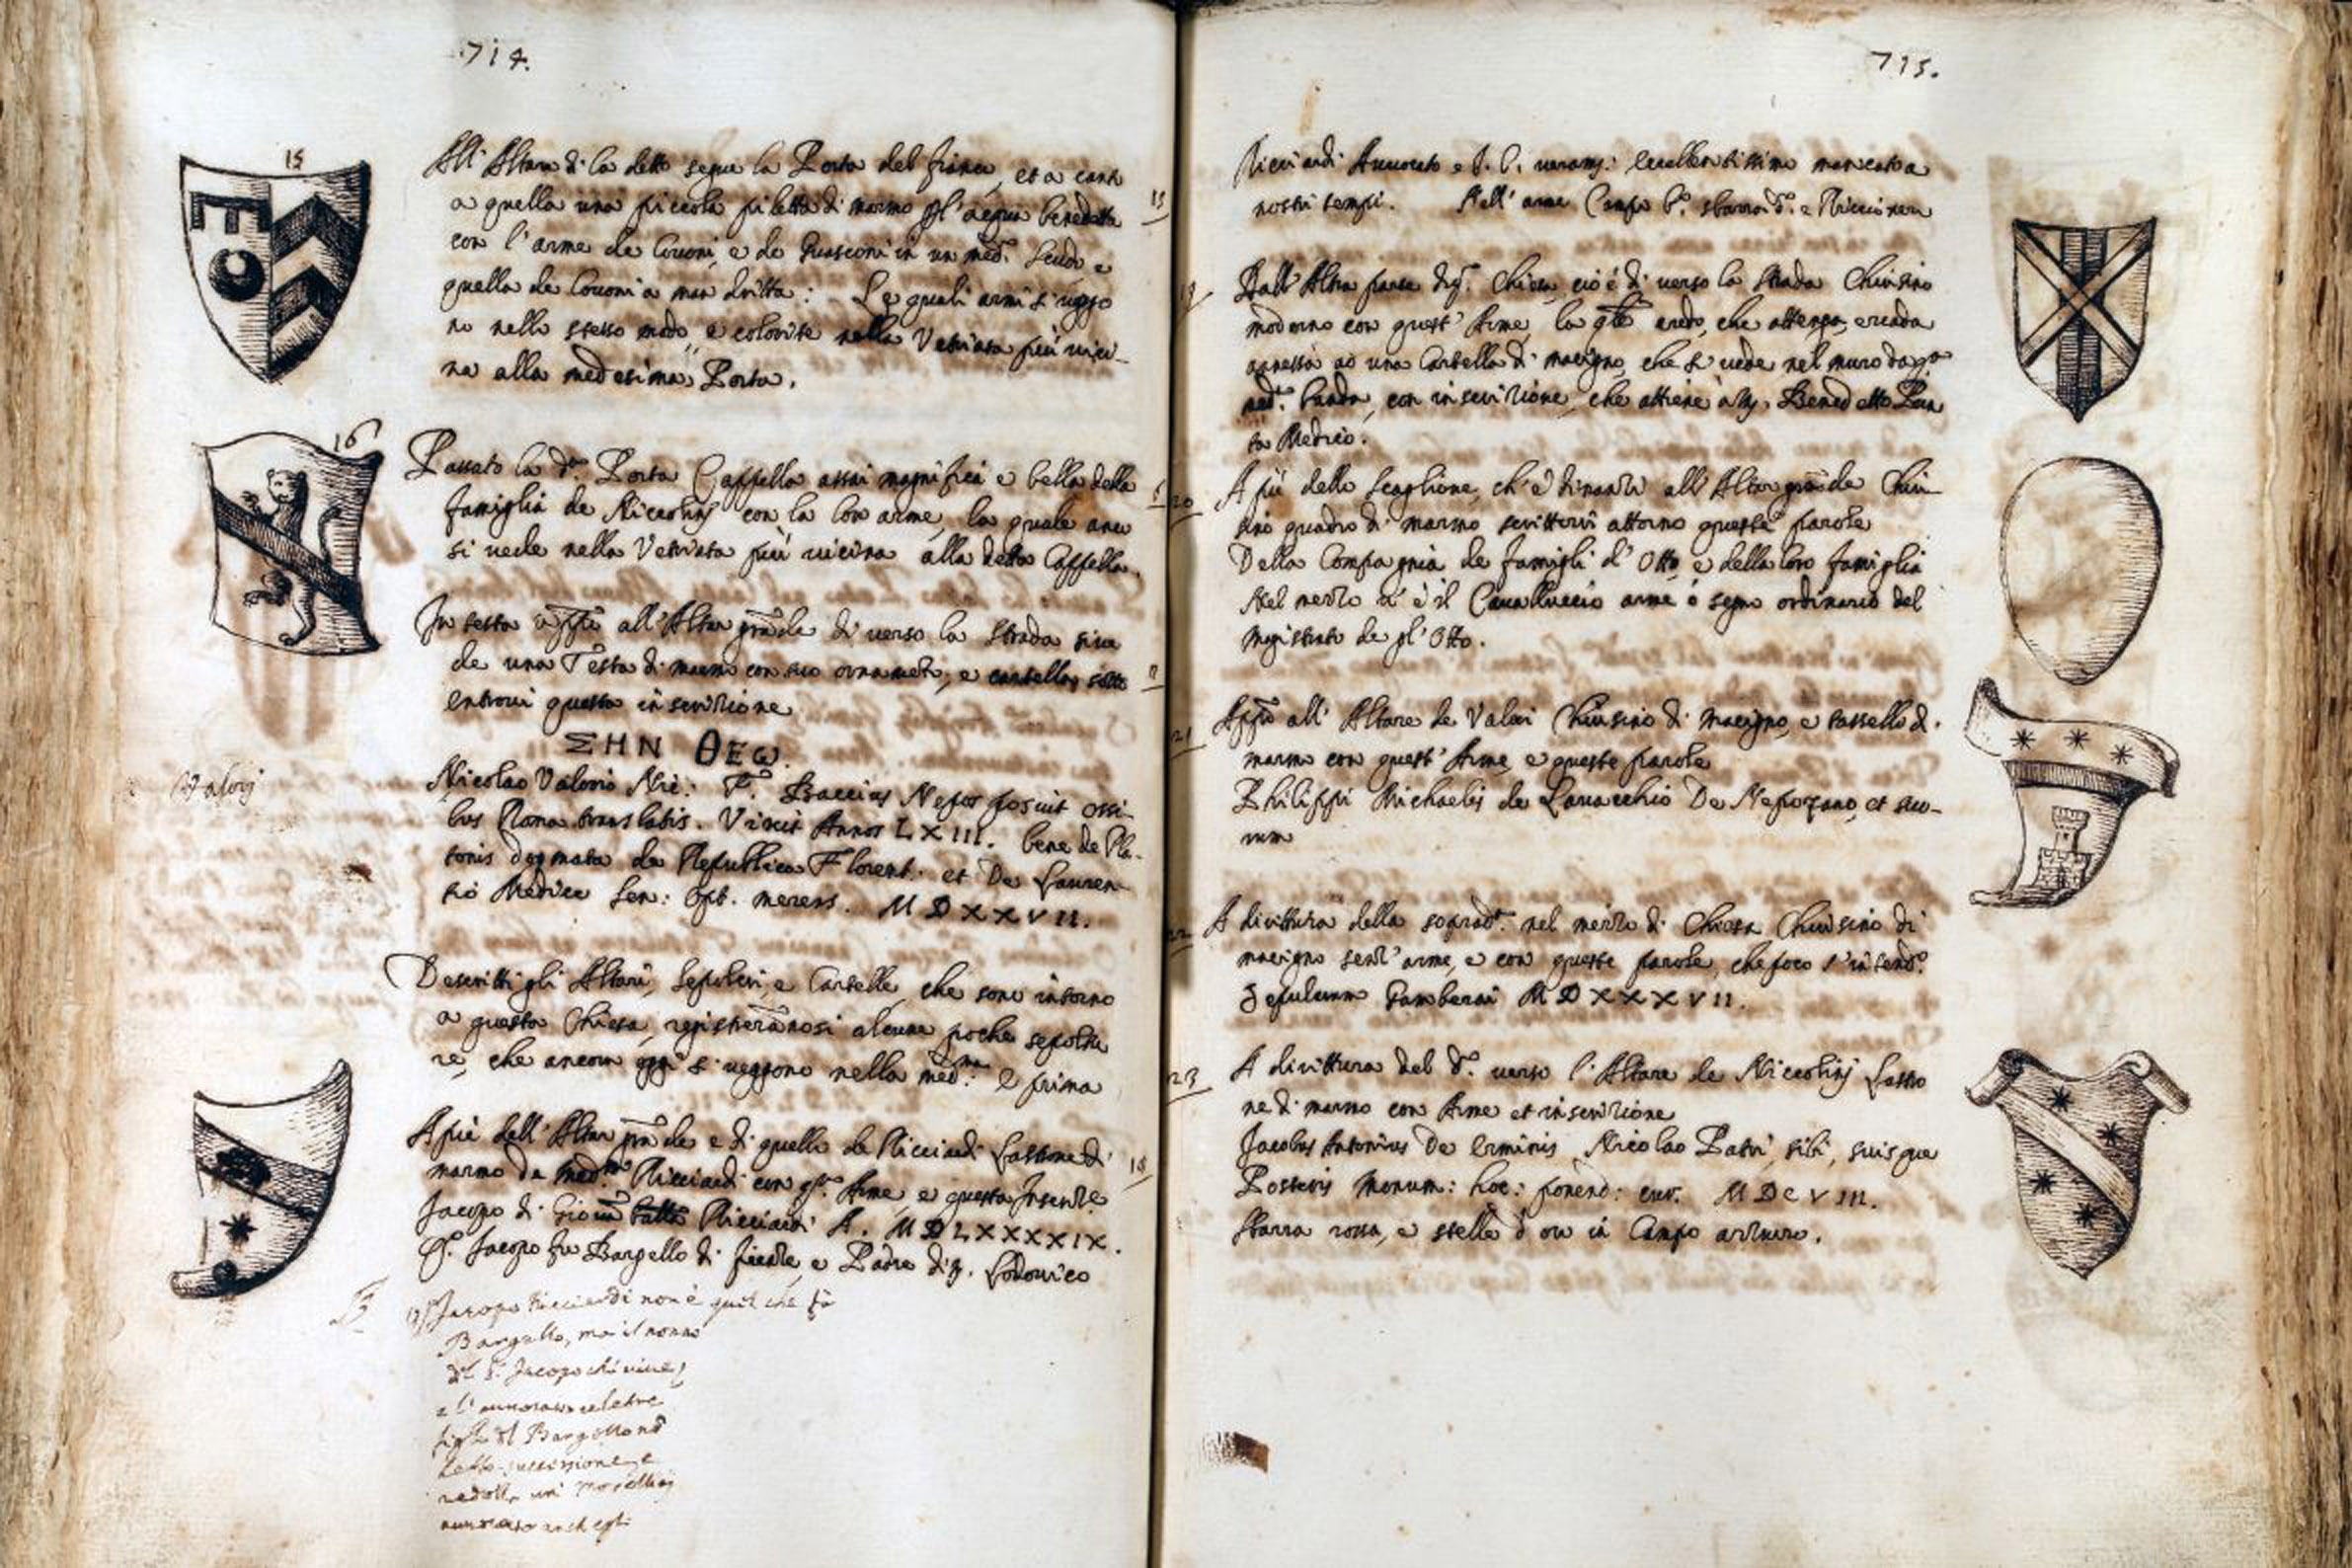 714.
15
All' Altare di la detto segue la Porta del fianco, et a canto
a quella una piccola piletta di marmo p l'acqua benedetta
con l'arme de Covoni, e de Guasconi in un med.º Scudo e
quella de Covoni a man dritta: Le quali armi si veggo
no nello stesso modo, e colorite nella Vetriata più vici-
na alla medesima Porta.
15
16
Passato la d.ª Porta Cappella assai magnifica e bella della
famiglia de Niccolinj con la lor arme, la quale anco
si vede nella Vetriata più vicina alla detta Cappella.
In testa all' Altar grāde di verso la strada
de una Testa di marmo con suo ornameto, e cartella sotto
entrovi questa inscrizione
ΣΗΝ ΘΕω.
Valorj
Nicolao Valorio Nic: F. Baccius Nepos posuit ossi-
bus Roma translatis. Vixit Annos LXIII. bene de Pla-
tonis dogmata de Republica Florent. et De Lauren-
tio Medice Sen: Opt. merens. MDXXVII.
Descritti gli Altari, Sepolcri, e Cartelle, che sono intorno
a questa Chiesa, registrerānosi alcune poche sepoltu
re, che ancora oggi si veggono nella med.ma: e prima
A piè dell' Altar grāde e di quello de Ricciardi Lastrone di
marmo de med.mi Ricciardi con q.ª Arme, e questa Inscriz.e
18
Jacopo di Giovā Batta Ricciardi A. MDLXXXXIX.
Jacopo fu Bargello di Firēze, e Padre di Lodovico
Jacopo Ricciardi non è quel che fu
Bargello, ma il nonno
Jacopo chi vive
e l'avvocato celebre
Bargello
successione, e
715.
Ricciardi Avvocato e eccellentissimo mancato a
nostri tempi. Nell' arme Campo
19
Dall' Altra parte di q.ª Chiesa, cioè di verso la strada Chiusino
moderno con quest' Arme, la credo, che attenga, e cada
annessa ad una Cartella di macigno, che si vede nel muro da
med.ª banda, con inscrizione, che attiene à Benedetto
Medico.
20
A piè dello scaglione, ch'è dinanzi all' Altar grāde Chiu-
sino quadro di marmo scrittovi attorno queste parole
Della Compagnia de famigli d' Otto, e della loro famiglia
Nel mezzo v' è il Cavalluccio arme ò segno ordinario del
Magistrato de gl' Otto.
21
all' Altare de Valori Chiusino di macigno, e tassello di
marmo con quest' Arme, e queste parole
Philippi Michaelis de Lavacchio De Nepozano, et suo-
rum
22
A dirittura della soprad.ª nel mezzo di Chiesa Chiusino di
macigno senz' arme, e con queste parole, che poco s' intend.º
Sepulcrum Gamberai MDXXXVII.
23
A dirittura del d.º verso l'Altare de Niccolinj Lastro
ne di marmo con Arme et inscrizione
Jacobus Antonius De Erminis Nicolao Patri, sibi, suisque
Posteris Monum: hoc: ponend: cur. MDCVIII.
Sbarra rossa, e stelle d'oro in Campo azzurro.